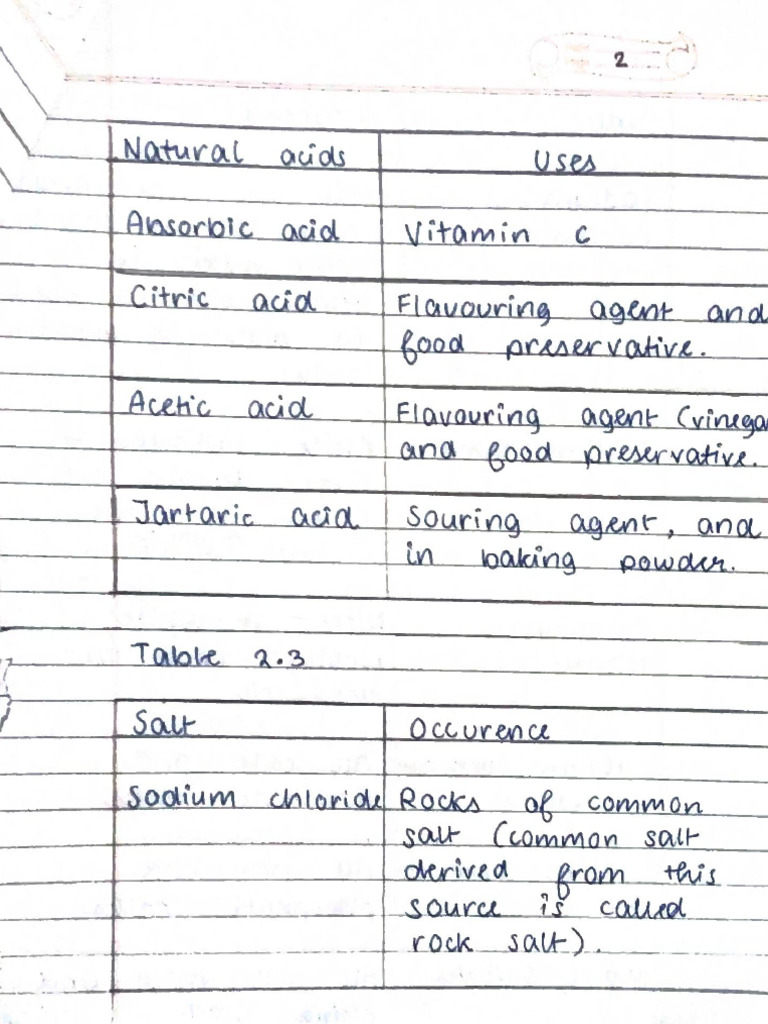 2
Natural acids Uses
Absorbic acid Vitamin C
Citric acid Flavouring agent and
food preservative.
Acetic acid Flavouring agent (vinegar
and food preservative.
Tartaric acid Souring agent, and
in baking powder.
Table 2.3
Salt Occurence
Sodium chloride Rocks of common
salt (common salt
derived from this
source is called
rock salt).